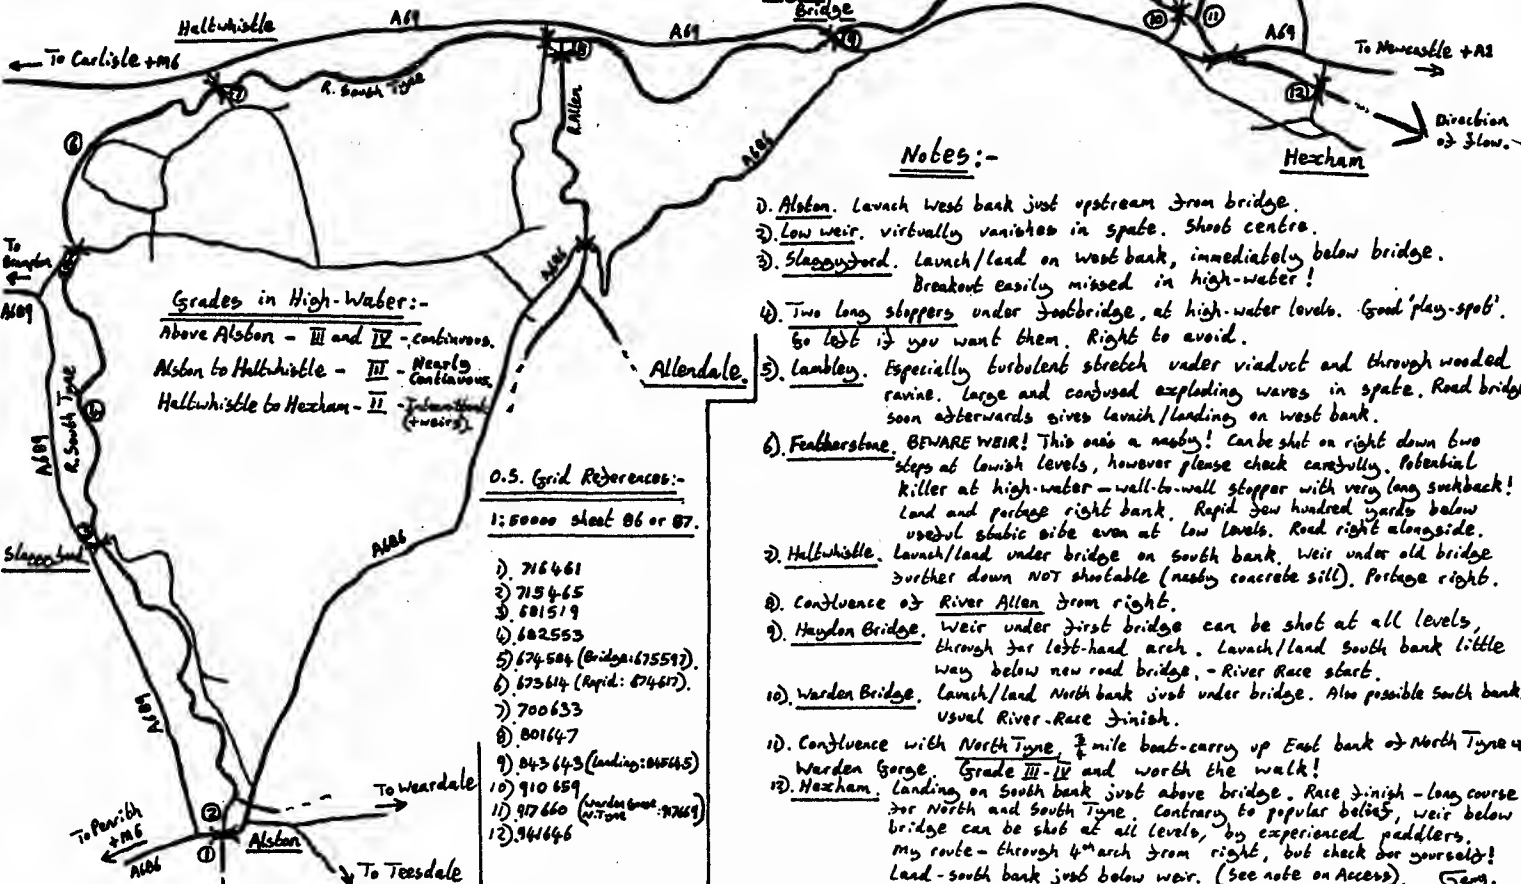 Haltwhistle
A69
A69
Bridge
9
10
11
A69
To Newcastle + A1
To Carlisle + M6
7
R. South Tyne
8
R. Allen
12
Direction
of flow.
Hexham
6
A686
To
Brampton
A689
5
A686
Grades in High-Water:-
Above Alston - III and IV - continuous.
Alston to Haltwhistle - III - Nearly
Continuous.
Haltwhistle to Hexham - II - Intermittent
(+weirs).
Allendale.
A689
R. South Tyne
4
3
Slaggyford
A686
A689
O.S. Grid References:-
1:50000 sheet 86 or 87.
1). 716461
2) 715465
3). 681519
4). 682553
5). 674584 (Bridge: 675597).
6). 673614 (Rapid: 674617).
7) 700633
8) 801647
9) 843643 (Landing: 845645)
10) 910659
11) 917660 (Warden Gorge N. Tyne: 917669)
12). 941646
2
1
Alston
To Weardale
To Penrith
+ M6
A686
To Teesdale
Notes:-
1). Alston. Launch West bank just upstream from bridge.
2). Low weir. virtually vanishes in spate. Shoot centre.
3). Slaggyford. Launch/land on West bank, immediately below bridge.
Breakout easily missed in high-water!
4). Two long stoppers under footbridge, at high-water levels. Good 'play-spot'.
Go left if you want them. Right to avoid.
5). Lambley. Especially turbulent stretch under viaduct and through wooded
ravine. Large and confused exploding waves in spate. Road bridge
soon afterwards gives launch/landing on west bank.
6). Featherstone. BEWARE WEIR! This one's a nasty! Can be shot on right down two
steps at lowish levels, however please check carefully. Potential
killer at high-water - wall-to-wall stopper with very long suckback!
Land and portage right bank. Rapid few hundred yards below
useful static site even at low levels. Road right alongside.
7). Haltwhistle. Launch/land under bridge on South bank. Weir under old bridge
further down NOT shootable (nasty concrete sill). Portage right.
8). Confluence of River Allen from right.
9). Haydon Bridge. Weir under first bridge can be shot at all levels,
through far left-hand arch. Launch/land South bank little
way below new road bridge. - River Race start.
10). Warden Bridge. Launch/land North bank just under bridge. Also possible South bank
usual River-Race finish.
11). Confluence with North Tyne. 3/4 mile boat-carry up East bank of North Tyne
Warden Gorge. Grade III-IV and worth the walk!
12). Hexham. Landing on South bank just above bridge. Race finish - long course
for North and South Tyne. Contrary to popular belief, weir below
bridge can be shot at all levels, by experienced paddlers.
My route - through 4th arch from right, but check for yourself!
Land - south bank just below weir. (See note on Access).